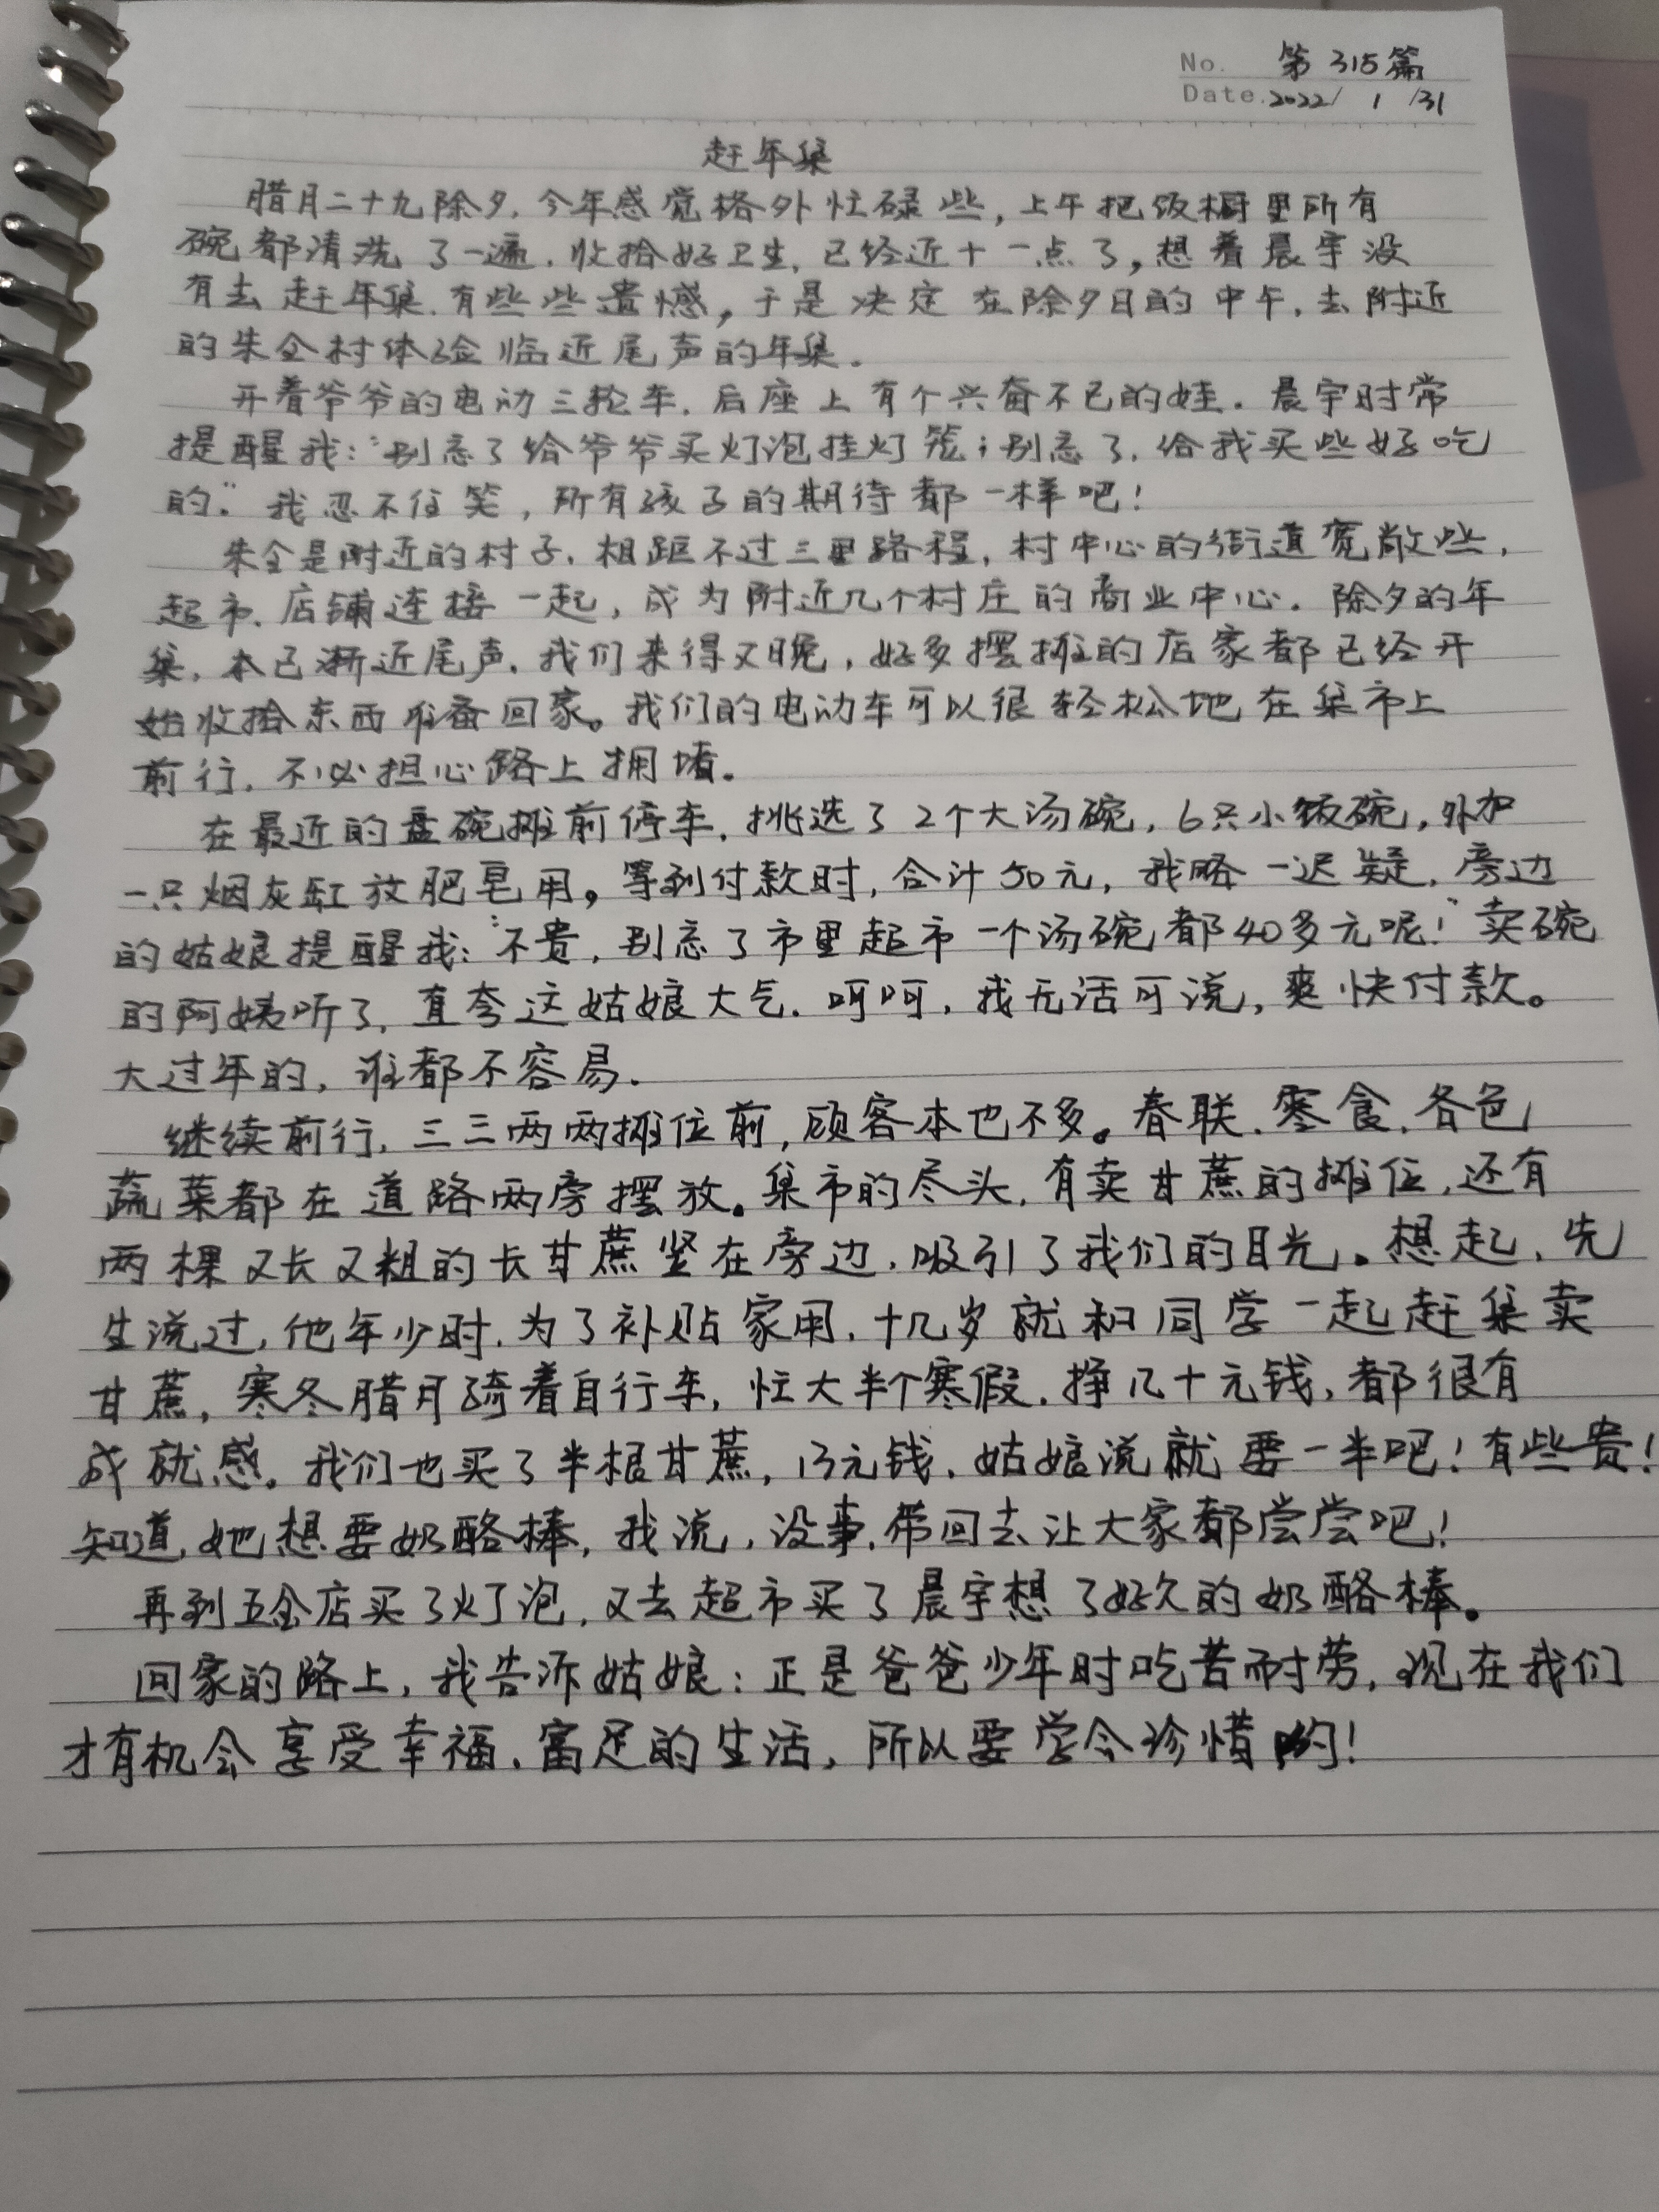 No. 第315篇
Date. 2022/ 1 /31
赶年集
腊月二十九除夕,今年感觉格外忙碌些,上午把饭橱里所有
碗都清洗了一遍,收拾好卫生,已经近十一点了,想着晨宇没
有去赶年集,有些些遗憾,于是决定在除夕日的中午,去附近
的朱全村体验临近尾声的年集。
开着爷爷的电动三轮车,后座上有个兴奋不已的娃。晨宇时常
提醒我:“别忘了给爷爷买灯泡挂灯笼;别忘了,给我买些好吃
的。”我忍不住笑,所有孩子的期待都一样吧!
朱全是附近的村子,相距不过三里路程,村中心的街道宽敞些,
超市、店铺连接一起,成为附近几个村庄的商业中心。除夕的年
集,本已渐近尾声,我们来得又晚,好多摆摊的店家都已经开
始收拾东西准备回家。我们的电动车可以很轻松地在集市上
前行,不必担心路上拥堵。
在最近的盘碗摊前停车,挑选了2个大汤碗,6只小饭碗,外加
一只烟灰缸放肥皂用。等到付款时,合计50元,我略一迟疑,旁边
的姑娘提醒我:“不贵,别忘了市里超市一个汤碗都40多元呢!”卖碗
的阿姨听了,直夸这姑娘大气。呵呵,我无话可说,爽快付款。
大过年的,谁都不容易.
继续前行,三三两两摊位前,顾客本也不多。春联、零食、各色
蔬菜都在道路两旁摆放。集市的尽头,有卖甘蔗的摊位,还有
两棵又长又粗的长甘蔗竖在旁边,吸引了我们的目光。想起,先
生说过,他年少时,为了补贴家用,十几岁就和同学一起赶集卖
甘蔗,寒冬腊月骑着自行车,忙大半个寒假,挣几十元钱,都很有
成就感。我们也买了半根甘蔗,13元钱,姑娘说就要一半吧!有些贵!
知道,她想要奶酪棒,我说,没事,带回去让大家都尝尝吧!
再到五金店买了灯泡,又去超市买了晨宇想了好久的奶酪棒。
回家的路上,我告诉姑娘:正是爸爸少年时吃苦耐劳,现在我们
才有机会享受幸福、富足的生活,所以要学会珍惜哟!